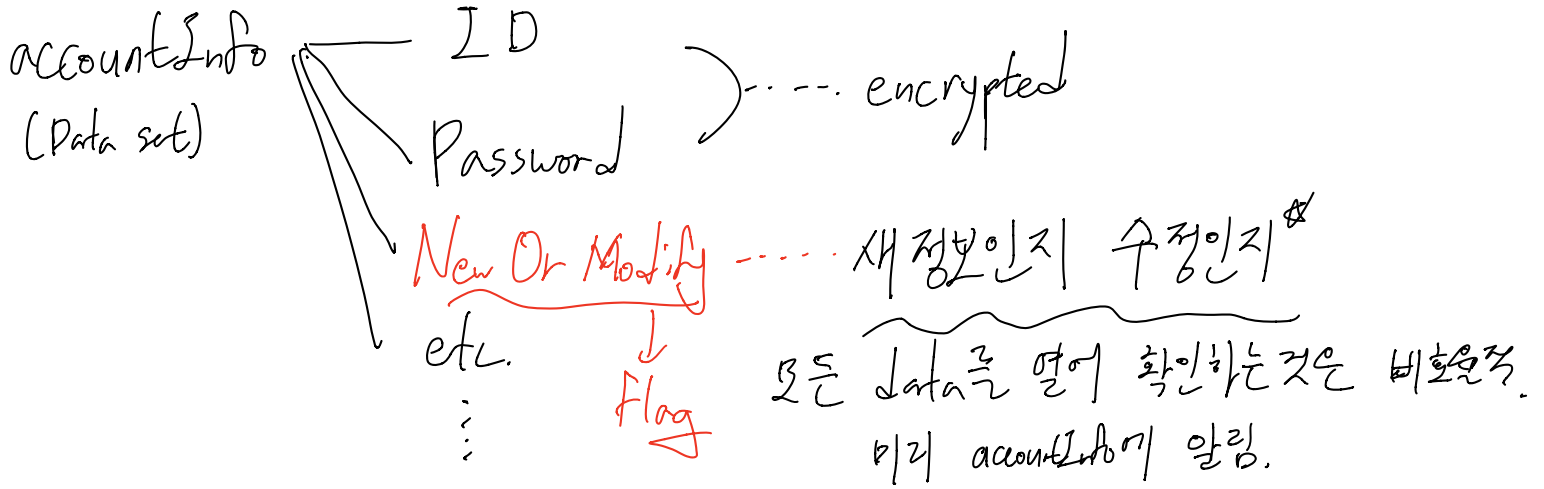 accountInfo
(Data set)
ID
Password
encrypted
New Or Modify
새정보인지 수정인지
etc.
Flag
모든 data를 열어 확인하는것은 비효율적.
미리 accountInfo에 알림.